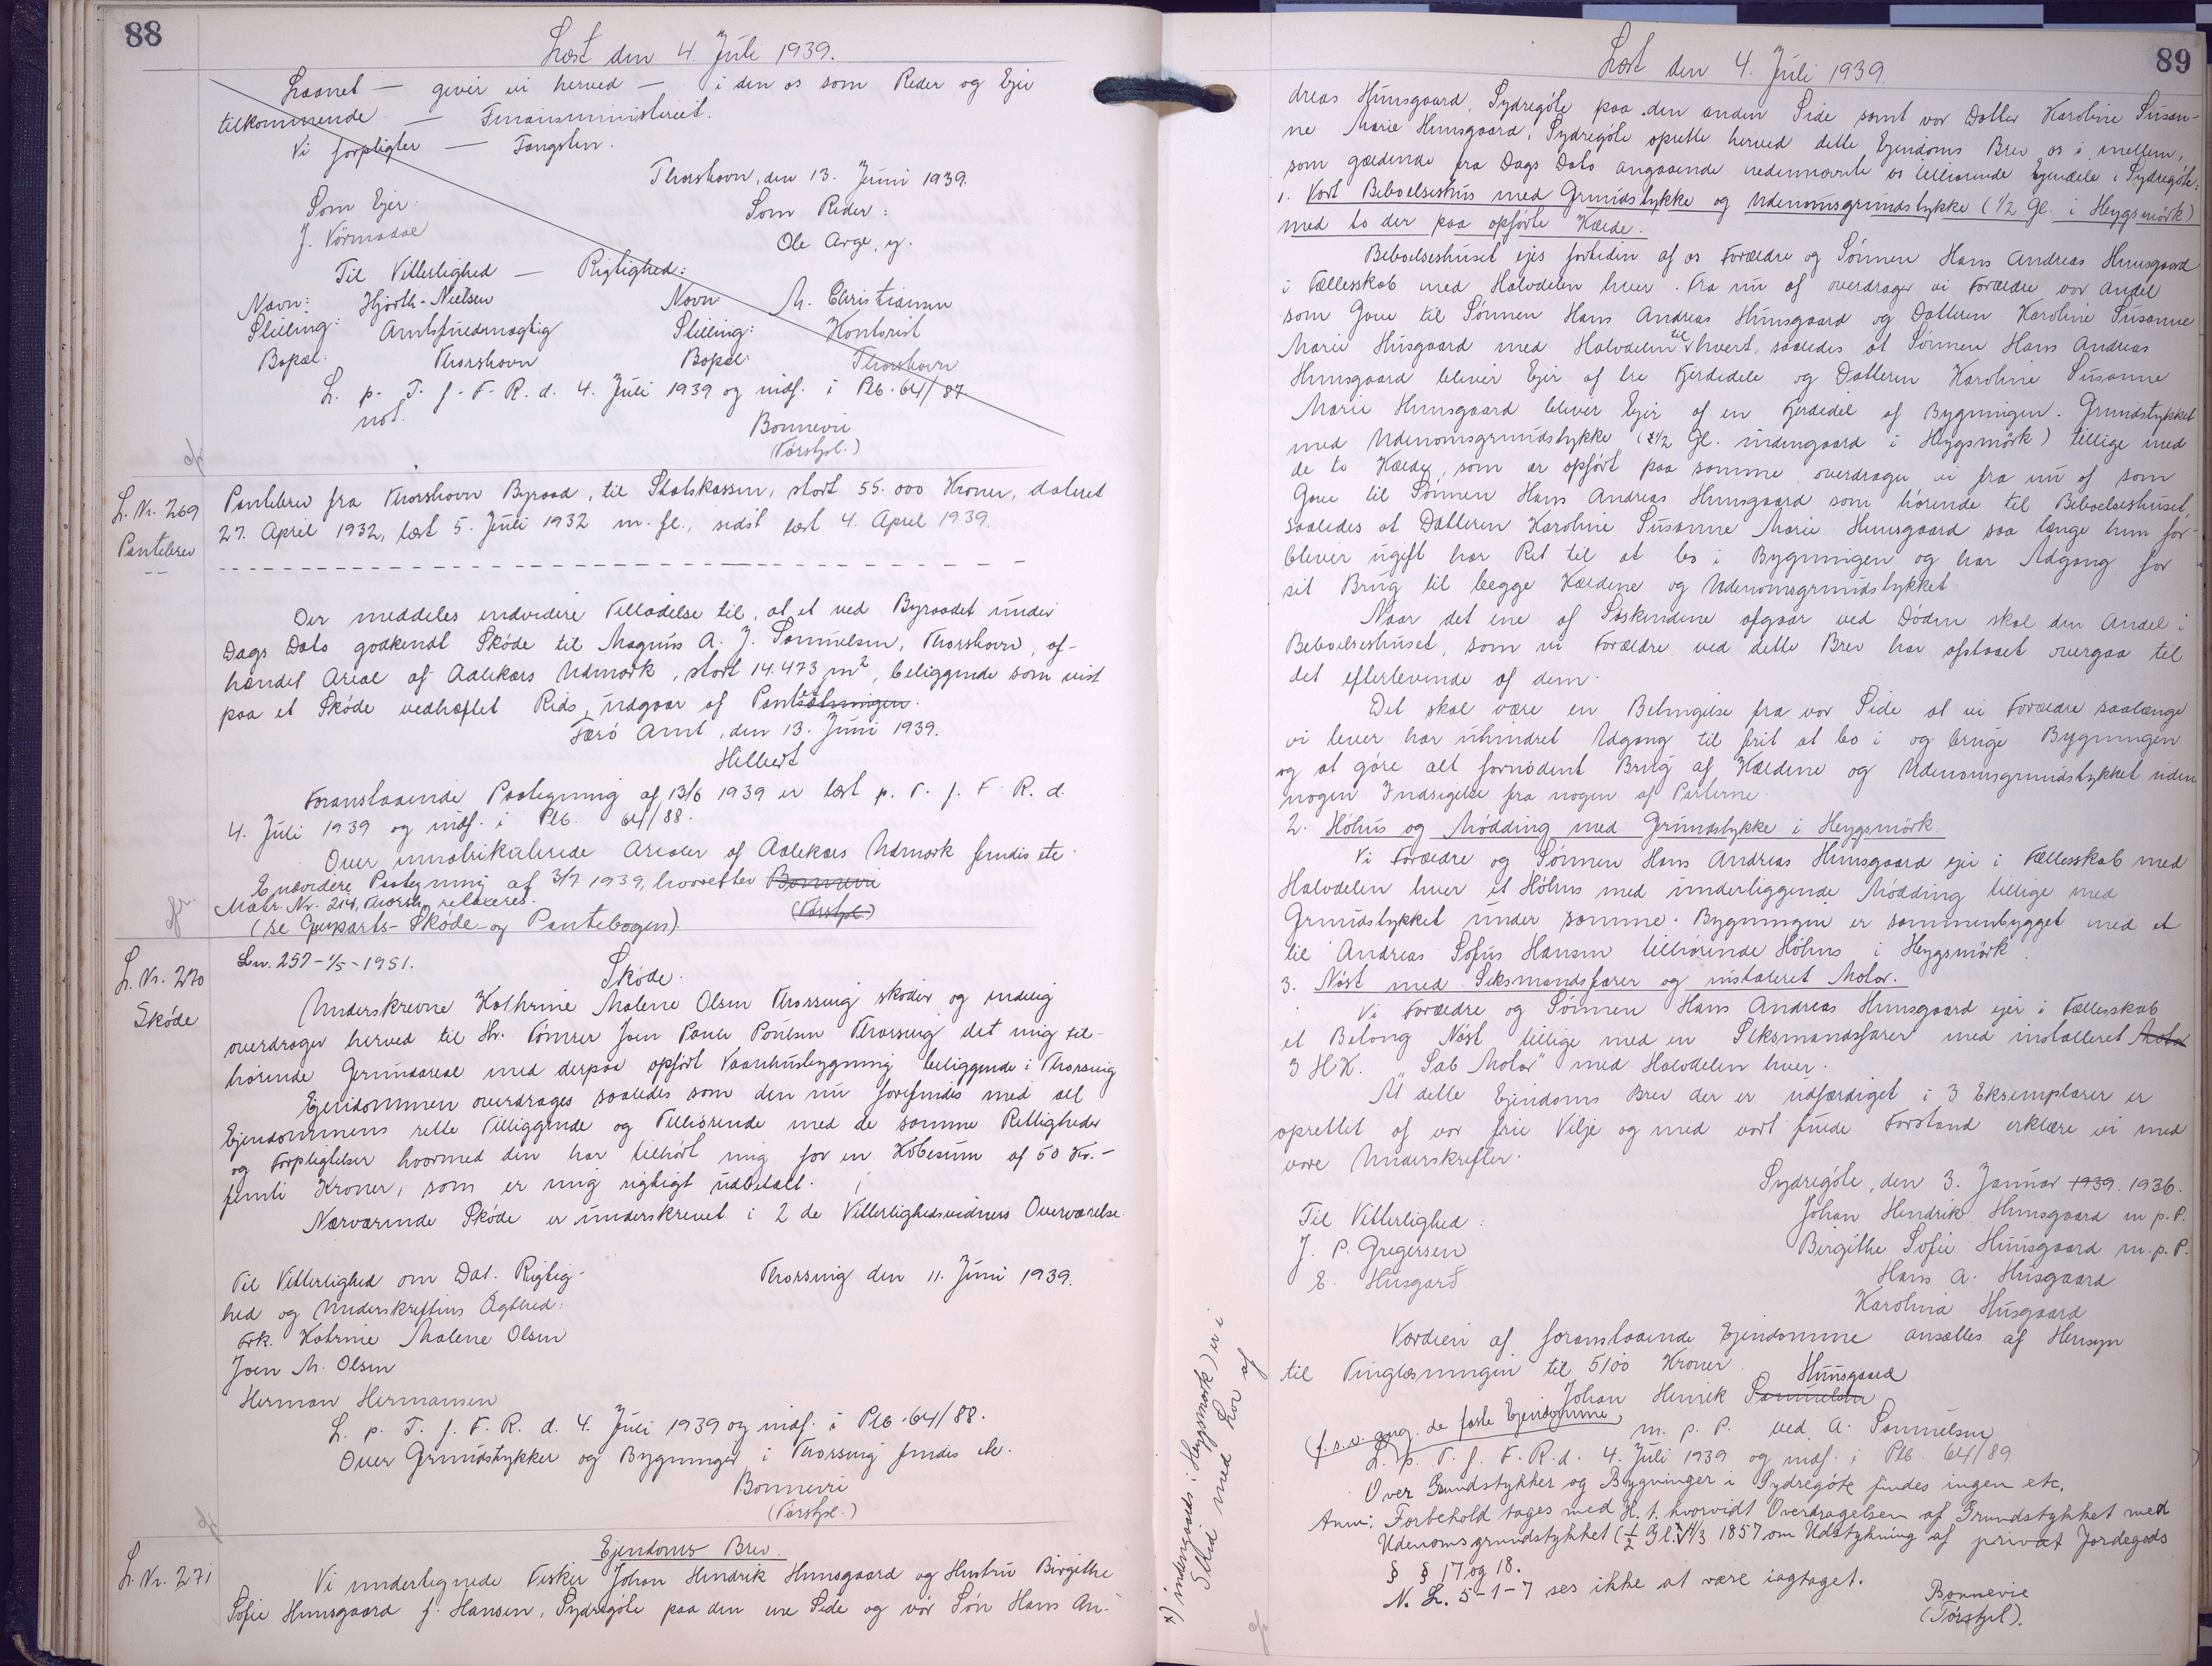 88
Læst den 4. Juli 1939.
Laanet — giver vi herved — i den os som Reder og Ejer
tilkommende — Finansministeriet.
Vi forpligter — Fangsten.
Thorshavn, den 13. Juni 1939.
Som Ejer: Som Reder:
J. Vörmadal Ole Arge, y.
Til Vitterlighed — Rigtighed:
Navn: Hjorth-Nielsen Navn: M. Christiansen
Stilling: Amtsfuldmægtig Stilling: Kontorist
Bopæl: Thorshavn Bopæl: Thorshavn
L. p. T. f. F. R. d. 4. Juli 1939 og indf. i Ptb. 64/87
not.
Bonnevie
(Torsfpl.)
L. Nr. 269
Pantebrev
Pantebrev fra Thorshavn Byraad, til Statskassen, stort 55.000 Kroner, dateret
27. April 1932, læst 5. Juli 1932 m. fl., sidst læst 4. April 1939.
Der meddeles endvidere Tilladelse til, at et ved Byraadet under
Dags Dato godkendt Skøde til Magnus A. J. Samuelsen, Thorshavn, af-
hændet Areal af Aalekærs Udmark, stort 14.473 m², beliggende som vist
paa et Skøde vedhæftet Rids, udgaar af Pantsætningen.
Færö Amt, den 13. Juni 1939.
Hilbert
Foranstaaende Paategning af 13/6 1939 er læst p. T. f. F. R. d.
4. Juli 1939 og indf. i Ptb. 64/88.
Over umatrikulerede Arealer af Aalekærs Udmark findes etc.
Endvidere Paategning af 3/7 1939, hvorefter Bonnevie
Matr. Nr. 214, Thorshn. relaxeres. (Torsfpl.)
(se Genparts-Skøde- og Pantebogen).
L. Nr. 270
Skøde
Ln. 257 - 1/5 - 1951.
Skøde.
Underskrevne Kathrine Malene Olsen Thorsvig skøder og endelig
overdrager herved til Hr. Tømrer Joen Pauli Poulsen Thorsvig det mig til-
hørende Grundareal med derpaa opført Vaanhusbygning beliggende i Thorsvig
Ejendommen overdrages saaledes som den nu forefindes med alt
Ejendommens rette Tilliggende og Tilhørende med de samme Rettigheder
og Forpligtelser hvormed den har tilhørt mig for en Købesum af 50 Kr.-
femti Kroner, som er mig rigtigt udbetalt.
Nærværende Skøde er underskrevet i 2 de Vitterlighedsvidners Overværelse.
Til Vitterlighed om Dat. Rigtig- Thorsvig den 11. Juni 1939.
hed og Underskriftens Ægthed:
Frk. Katrine Malene Olsen
Joen M. Olsen
Herman Hermansen
L. p. T. f. F. R. d. 4. Juli 1939 og indf. i Ptb. 64/88.
Over Grundstykker og Bygninger i Thorsvig findes etc.
Bonnevie
(Torsfpl.)
L. Nr. 271
Ejendoms Brev.
Vi undertegnede Fisker Johan Hendrik Hunsgaard og Hustru Birgithe
Sofie Hunsgaard f. Hansen, Sydregøte paa den ene Side og vor Søn Hans An-
89
Læst den 4. Juli 1939.
dreas Hunsgaard, Sydregøte paa den anden Side samt vor Datter Karoline Susan-
ne Marie Hunsgaard, Sydregøte oprette herved dette Ejendoms Brev os i mellem,
som gældende fra Dags Dato angaaende nedennævnte os tilhørende Ejendele i Sydregøte.
1. Vort Beboelseshus med Grundstykke og Udenomsgrundstykke (1/2 Gl. i Heygsmörk)
med to der paa opførte Kælde.
Beboelseshuset ejes fortiden af os Forældre og Sønnen Hans Andreas Hunsgaard
i Fællesskab med Halvdelen hver. Fra nu af overdrager vi Forældre vor Andel
som Gave til Sønnen Hans Andreas Hunsgaard og Datteren Karoline Susanne
Marie Husgaard med Halvdelen til hvert, saaledes at Sønnen Hans Andreas
Hunsgaard bliver Ejer af tre Fjerdedele og Datteren Karoline Susanne
Marie Hunsgaard bliver Ejer af en Fjerdedel af Bygningen. Grundstykket
med Udenomsgrundstykke (1/2 Gl. indengaard i Heygsmörk) tillige med
de to Kælder, som er opført paa samme overdrager vi fra nu af som
Gave til Sønnen Hans Andreas Hunsgaard som hørende til Beboelseshuset,
saaledes at Datteren Karoline Susanne Marie Hunsgaard saa længe hun for-
bliver ugift har Ret til at bo i Bygningen og har Adgang for
sit Brug til begge Kældene og Udenomsgrundstykket.
Naar det ene af Søskendene afgaar ved Døden skal den Andel i
Beboelseshuset, som vi Forældre ved dette Brev har afstaaet overgaa til
det efterlevende af dem.
Det skal være en Betingelse fra vor Side at vi Forældre saalænge
vi lever har uhindret Adgang til frit at bo i og bruge Bygningen
og at gøre alt fornødent Brug af Kældene og Udenomsgrundstykket uden
nogen Indsigelse fra nogen af Parterne.
2. Høhus og Mødding med Grundstykke i Heygsmörk.
Vi Forældre og Sønnen Hans Andreas Hunsgaard ejer i Fællesskab med
Halvdelen hver et Høhus med underliggende Mødding tillige med
Grundstykket under samme. Bygningen er sammenbygget med et
til Andreas Sofus Hansen tilhørende Høhus i Heygsmörk.
3. Nöst med Seksmandsfarer og instaleret Motor.
Vi Forældre og Sønnen Hans Andreas Hunsgaard ejer i Fællesskab
et Betong Nöst tillige med en Seksmandsfarer med installeret Motor
3 H.K. "Sab Motor" med Halvdelen hver.
At dette Ejendoms Brev der er udfærdiget i 3 Eksemplarer er
oprettet af vor frie Vilje og med vort fulde Forstand erklære vi med
vore Underskrifter.
Sydregøte, den 3. Januar 1939. 1936.
Til Vitterlighed: Johan Hendrik Hunsgaard m. p. P.
J. P. Gregersen Birgithe Sofie Hunsgaard m. p. P.
E. Husgarð Hans A. Husgaard
Karolina Husgaard
Værdien af foranstaaende Ejendomme ansættes af Hensyn
til Tinglæsningen til 5100 Kroner.
Hunsgaard
Johan Henrik Samuelsen
(f. s. v. ang. de faste Ejendomme) m. p. P. ved A. Samuelsen
L. p. T. f. F. R. d. 4. Juli 1939 og indf. i Ptb. 64/89.
Over Grundstykker og Bygninger i Sydregøte findes ingen etc.
Anm: Forbehold tages med H. t. hvorvidt Overdragelsen af Grundstykket med
Udenomsgrundstykket (1/2 Gl. 4/3 1857 om Udstykning af privat Jordegods
§ § 17 og 18.
N. L. 5-1-7 ses ikke at være iagtaget.
Bonnevie
(Torsfpl).
x) indengaards i Heygsmørk) er i
Strid med Lov af